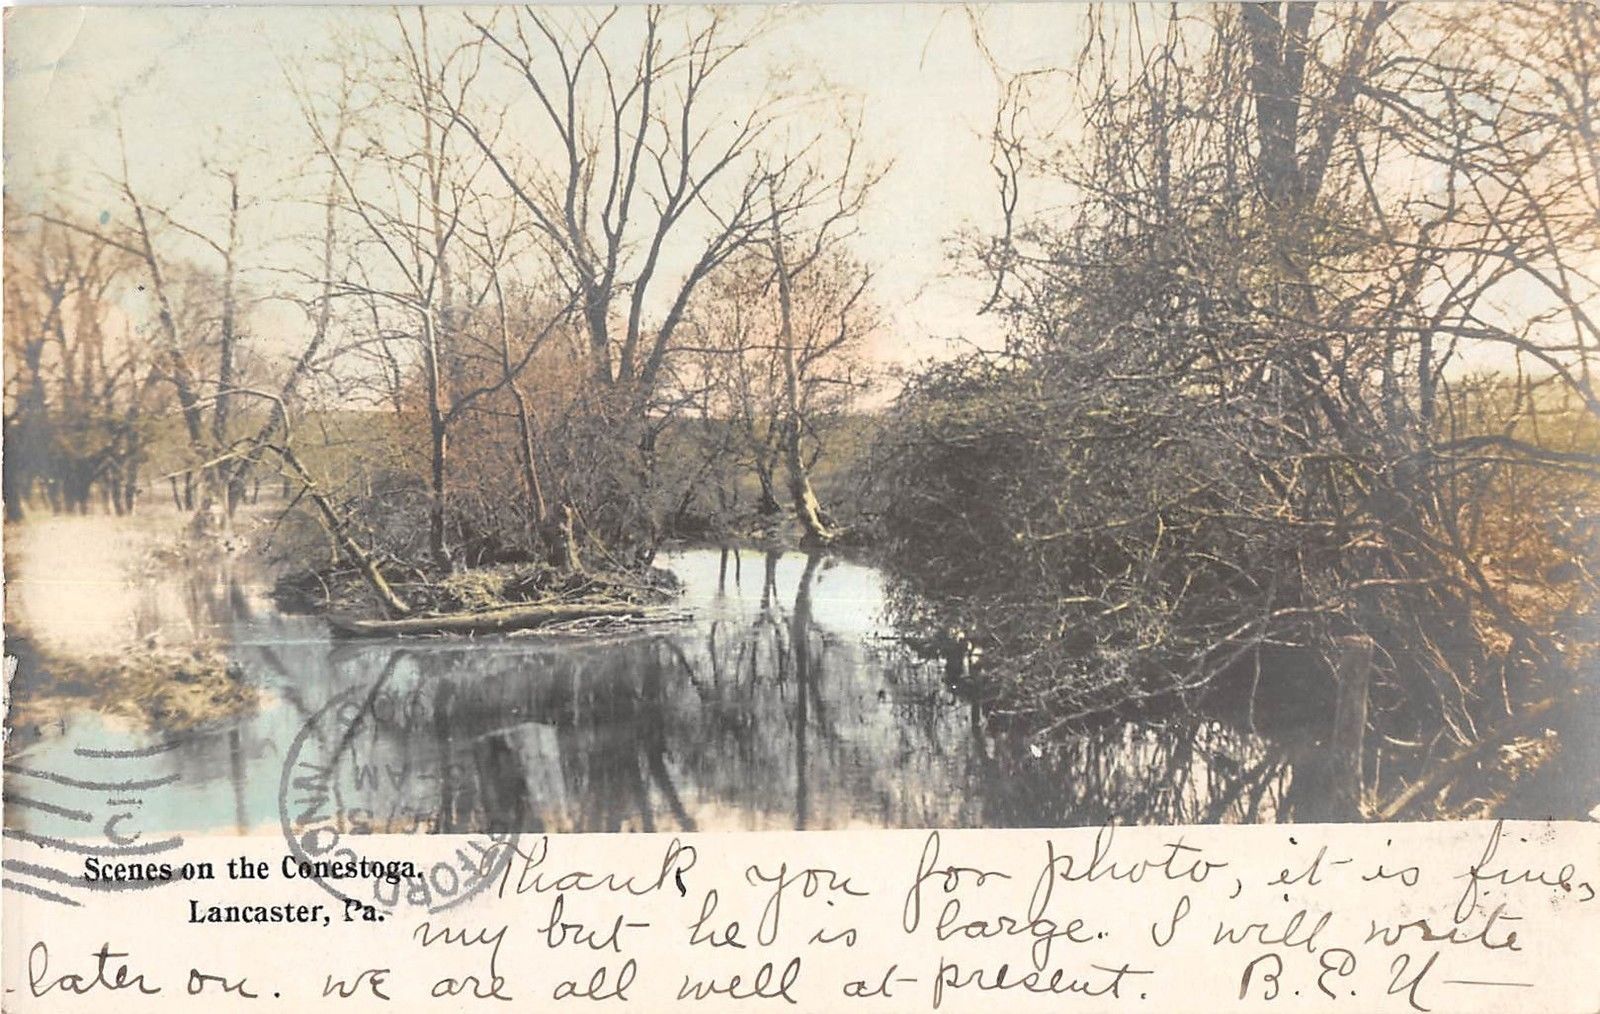 Scenes on the Conestoga.
Lancaster, Pa.
Thank you for photo, it is fine,
my but he is large. I will write
later on. we are all well at present. B.E.U
HARTFORD CONN.
AM